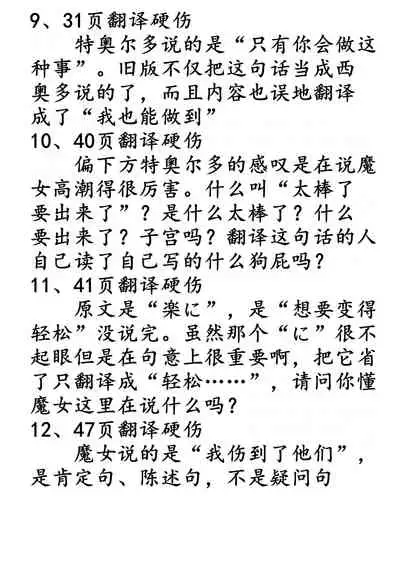 9、31页翻译硬伤
特奥尔多说的是“只有你会做这
种事”。旧版不仅把这句话当成西
奥多说的了，而且内容也误地翻译
成了“我也能做到”
10、40页翻译硬伤
偏下方特奥尔多的感叹是在说魔
女高潮得很厉害。什么叫“太棒了
要出来了”？是什么太棒了？什么
要出来了？子宫吗？翻译这句话的人
自己读了自己写的什么狗屁吗？
11、41页翻译硬伤
原文是“楽に”，是“想要变得
轻松”没说完。虽然那个“に”很不
起眼但是在句意上很重要啊，把它省
了只翻译成“轻松……”，请问你懂
魔女这里在说什么吗？
12、47页翻译硬伤
魔女说的是“我伤到了他们”，
是肯定句、陈述句，不是疑问句